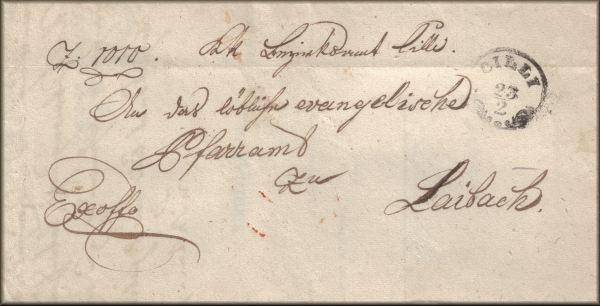 Z. 1010. KK Bezirksamt Cilli.
CILLI
23
2
An das löbliche evangelische
Pfarramt
zu
Laibach.
Exoffo